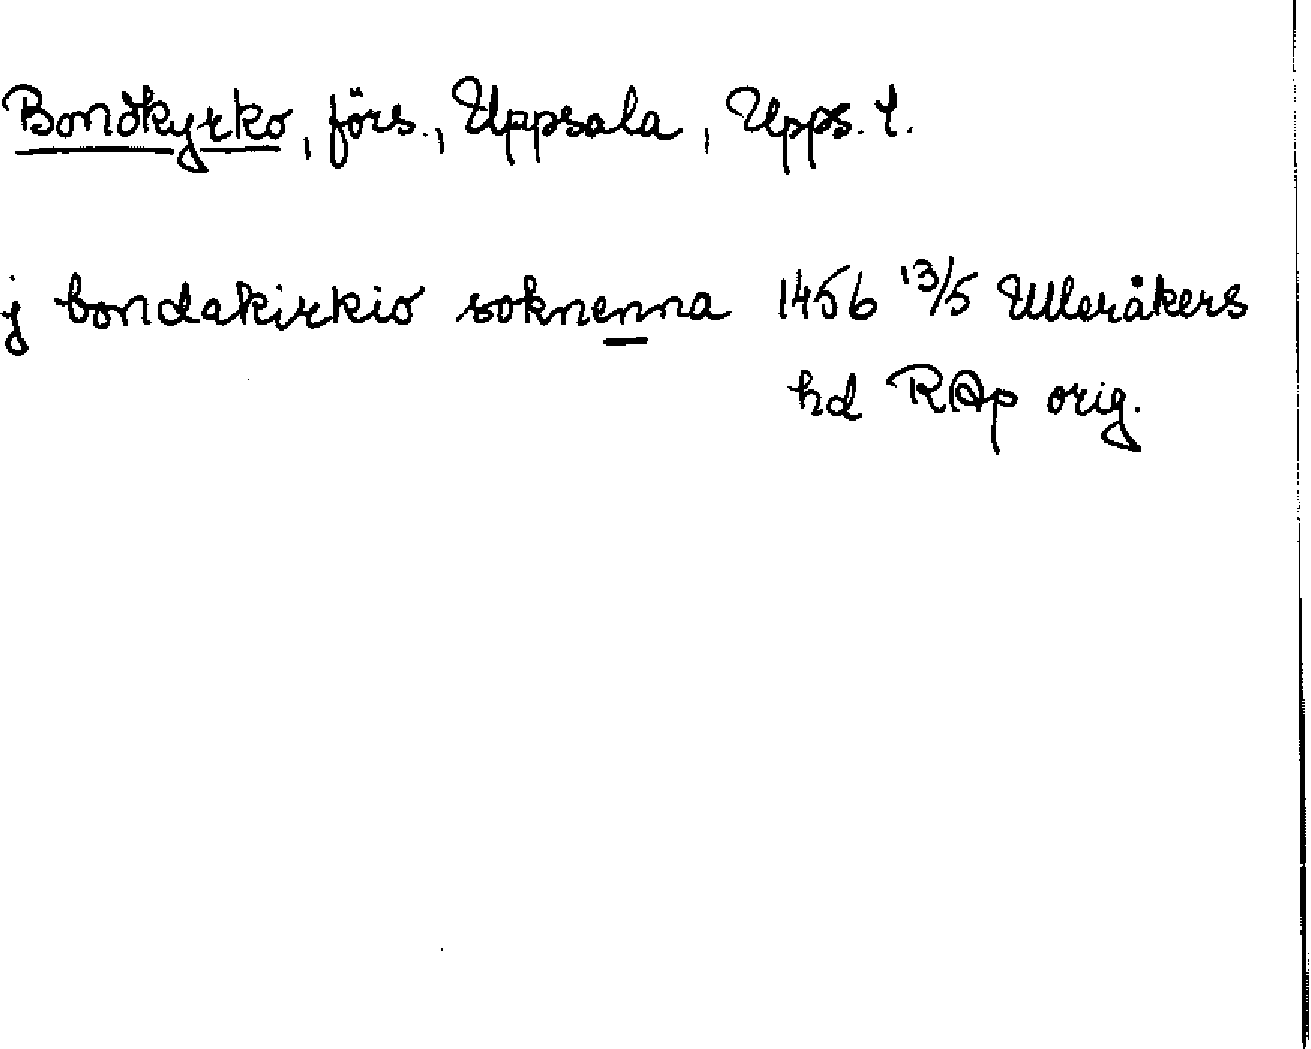 Bondkyrko, förs., Uppsala, Upps. l.
j bondakirkio soknenna 1456 13/5 Ulleråkers
hd RAp orig.